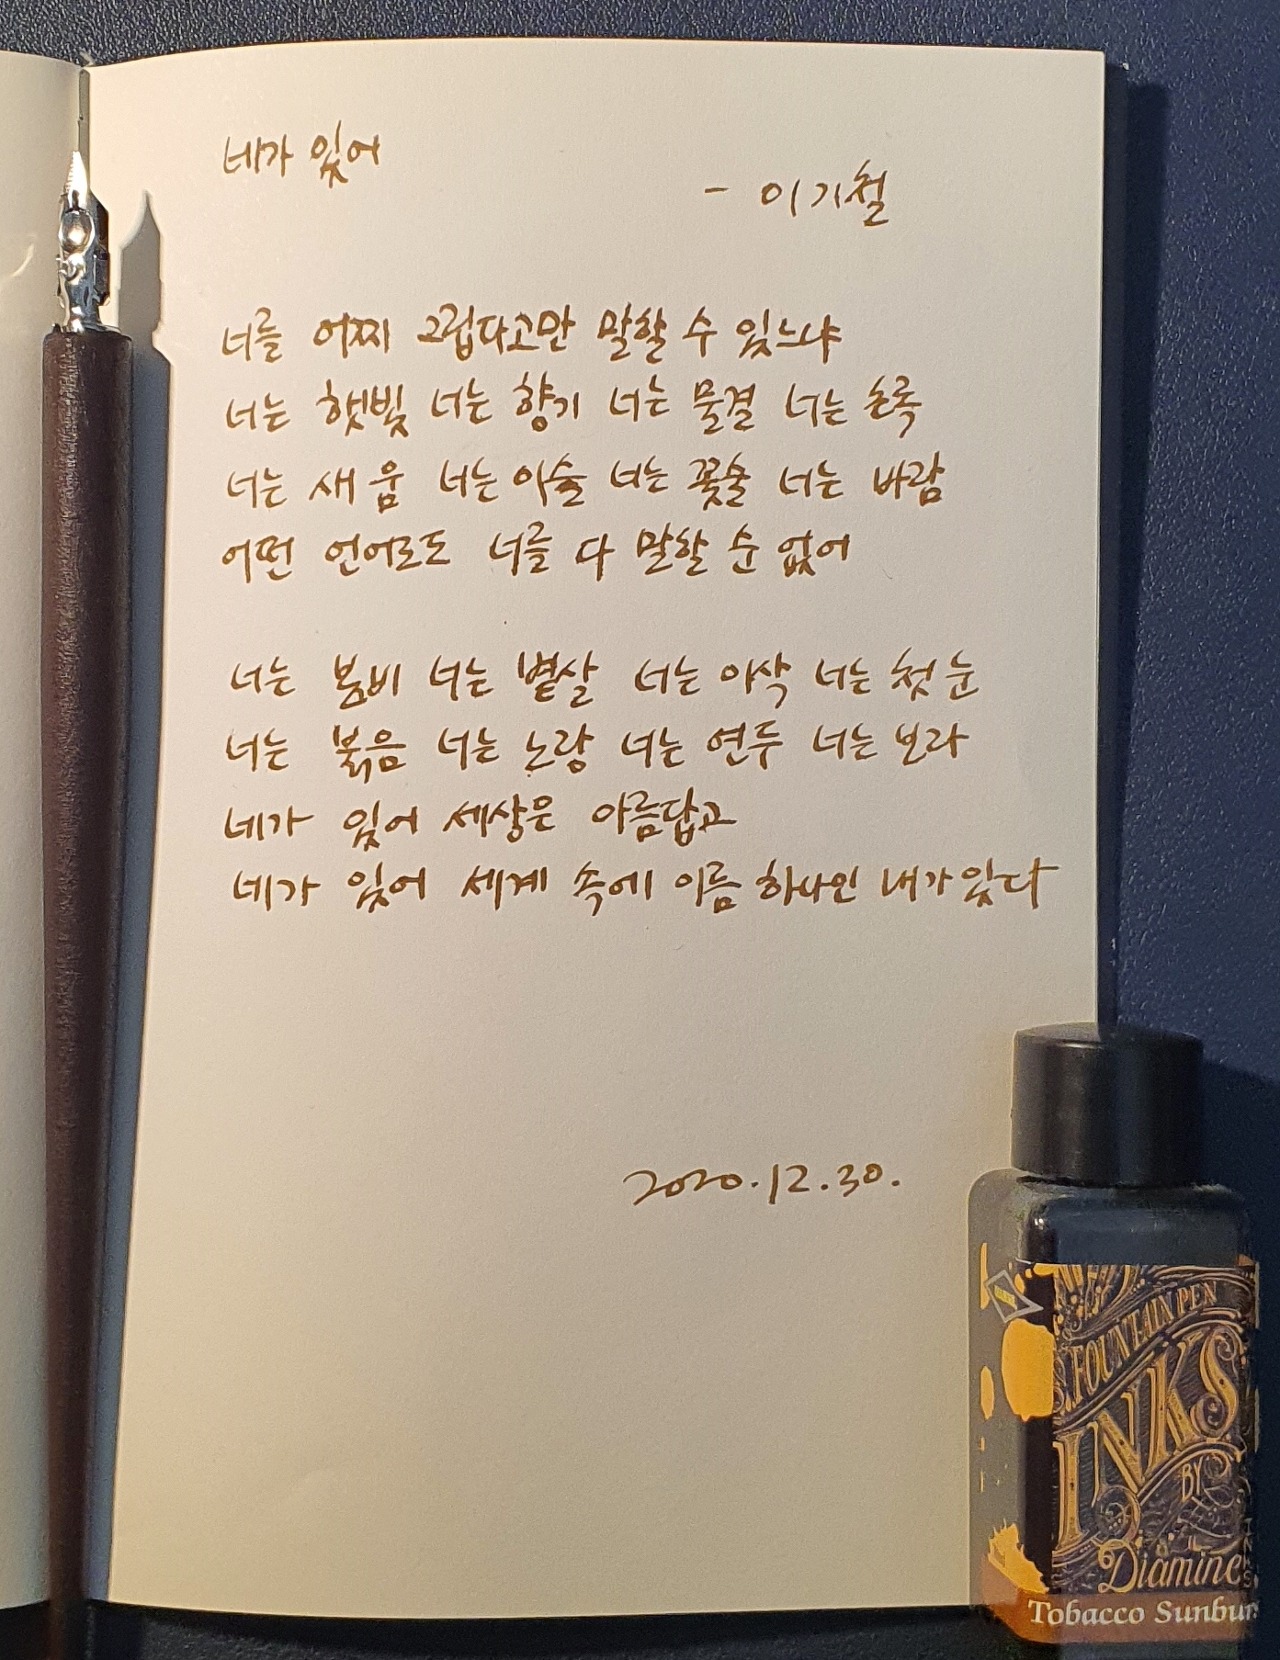 네가 있어
- 이기철
너를 어찌 그립다고만 말할 수 있느냐
너는 햇빛 너는 향기 너는 물결 너는 초록
너는 새 움 너는 이슬 너는 꽃술 너는 바람
어떤 언어로도 너를 다 말할 순 없어
너는 봄비 너는 볕살 너는 이삭 너는 첫 눈
너는 붉음 너는 노랑 너는 연두 너는 보라
네가 있어 세상은 아름답고
네가 있어 세계 속에 이름 하나인 내가 있다
2020.12.30.
FOUNTAIN PEN
INKS
BY
Diamine
Tobacco Sunbur